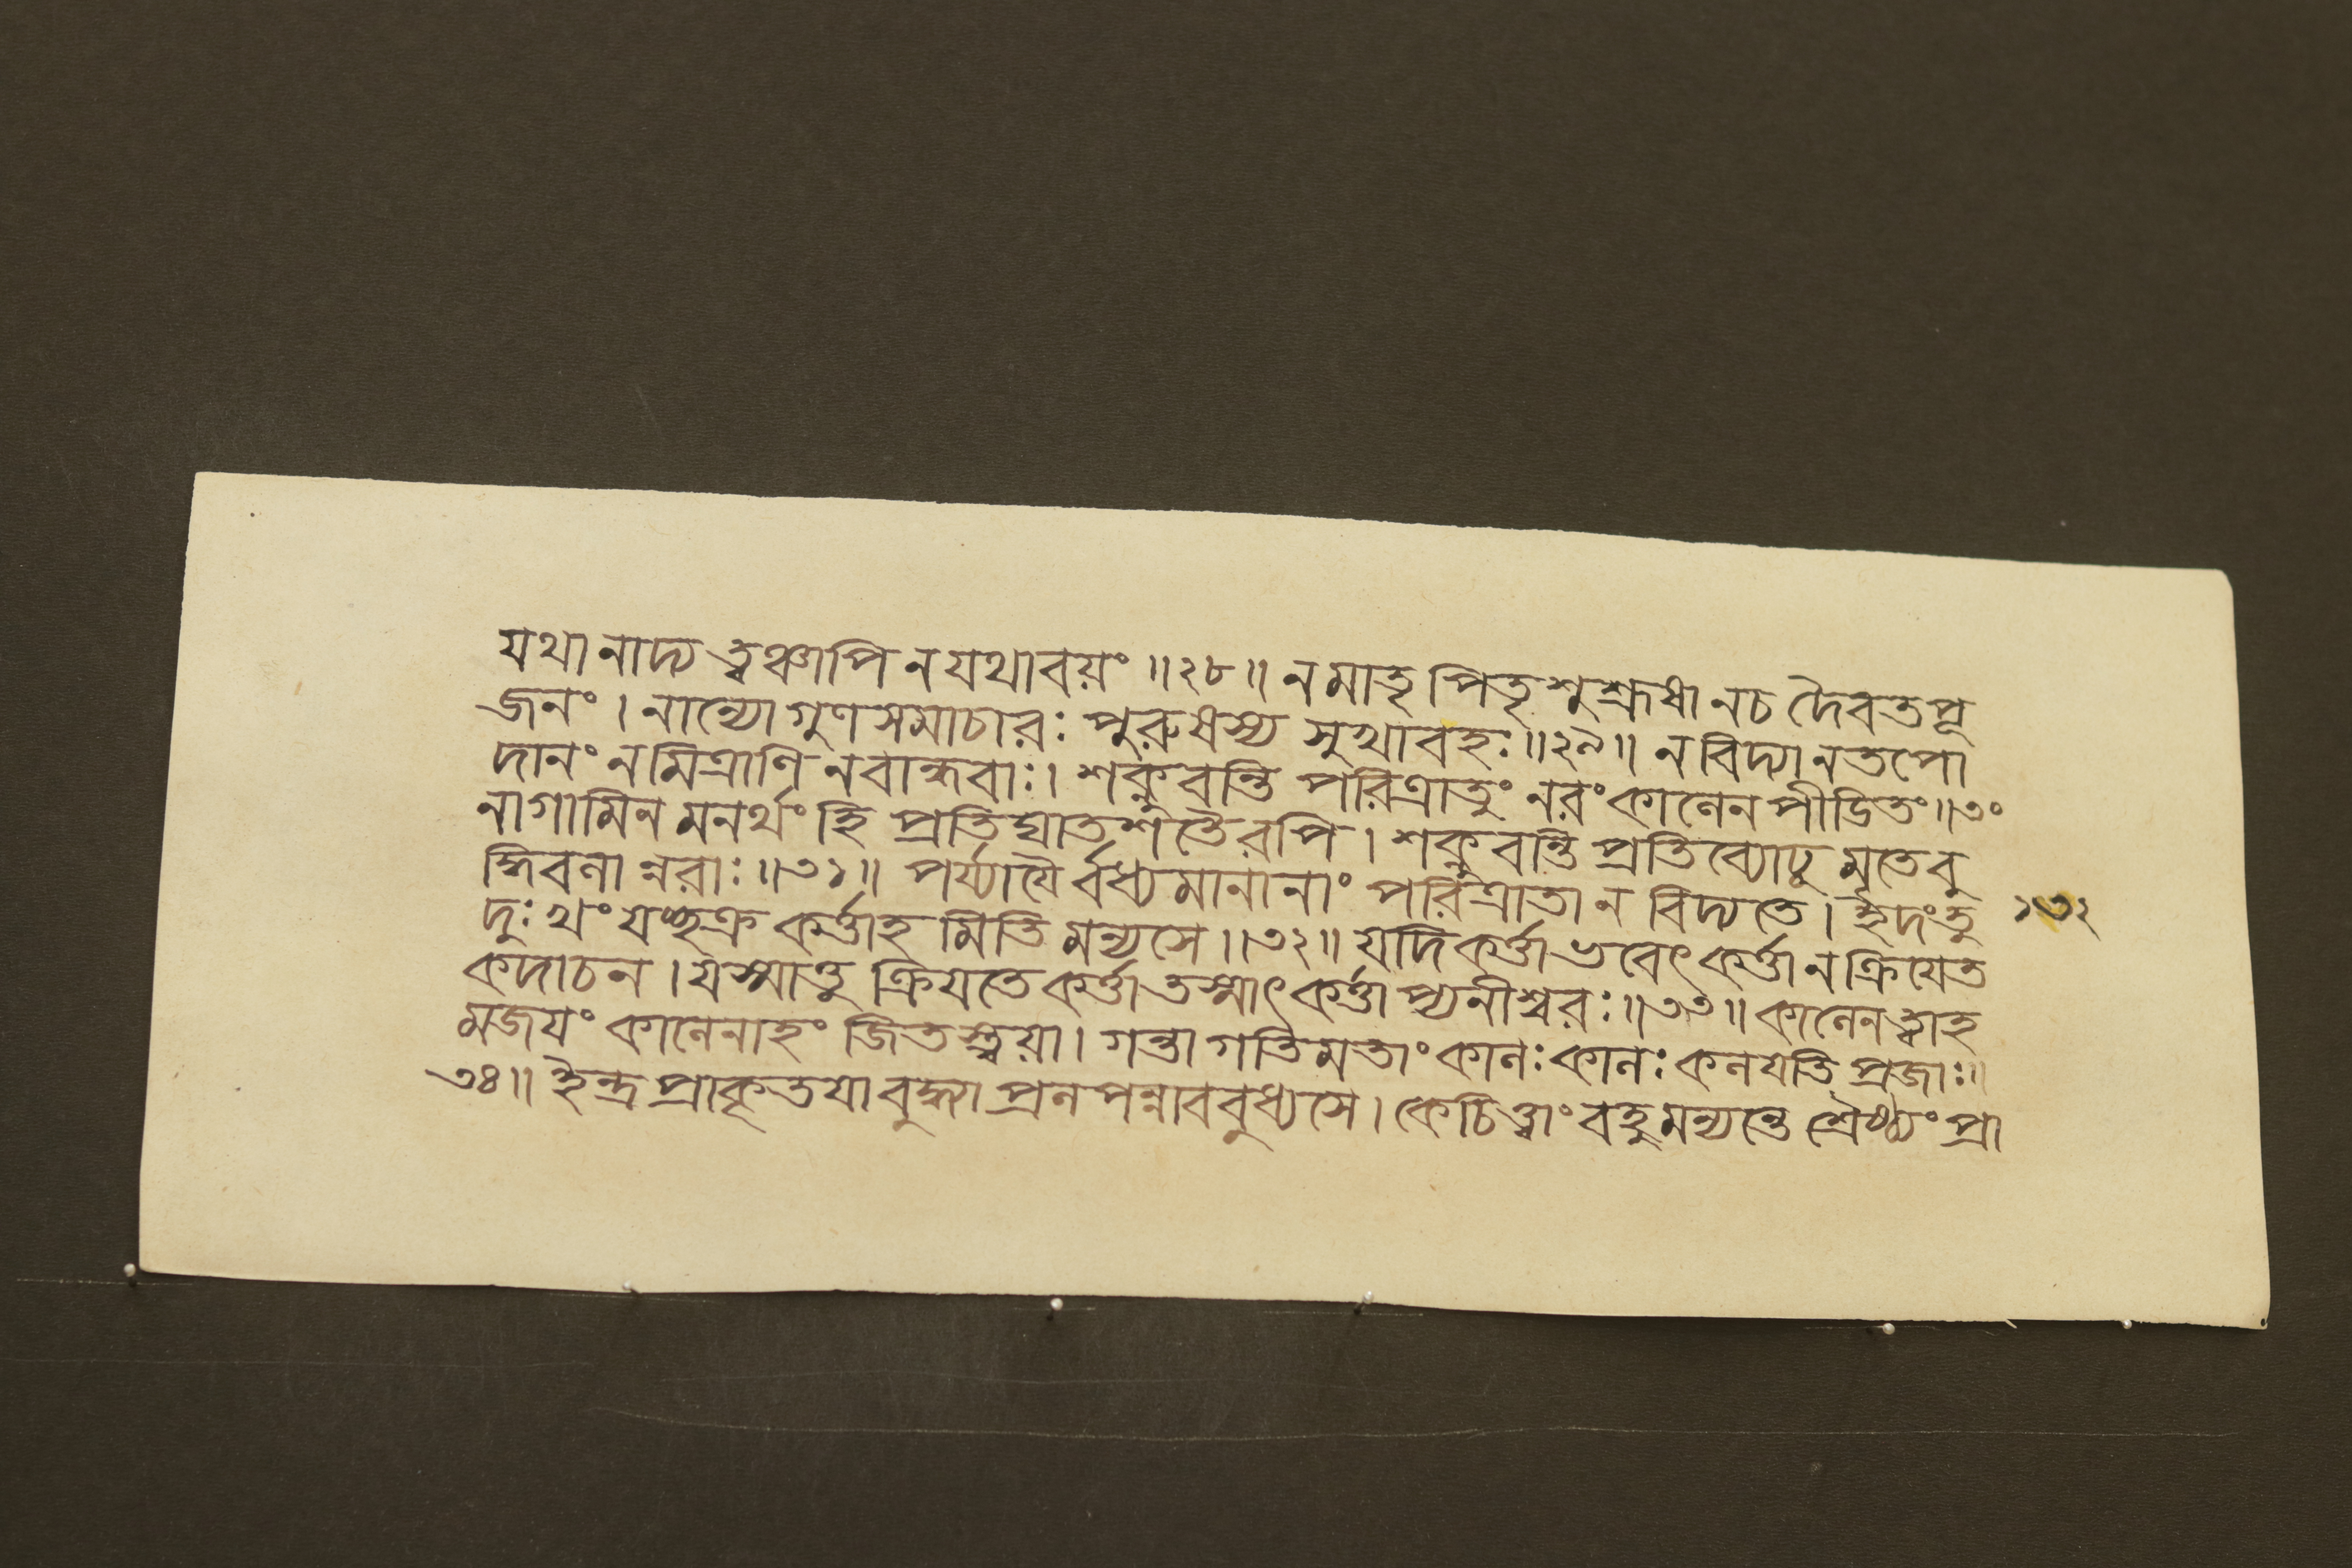 যথা নাদ্য ত্বঞ্চাপি ন যথাবয়ং ॥২৮॥ ন মাতৃ পিতৃ শুশ্রূষা নচ দৈবতপূ
জনং । নান্যো গুণ সমাচারঃ পুরুষস্য সুখাবহঃ ॥২৯॥ ন বিদ্যা ন তপো
দানং ন মিত্রাণি ন বান্ধবাঃ । শক্নুবন্তি পরিত্রাতুং নরং কালেন পীডিতং ॥৩০
নাগামিন মনর্থং হি প্রতিঘাত শতৈরপি । শক্নুবন্তি প্রতিব্যোঢু মৃতে বু
দ্ধিবলা ন্নরাঃ ॥৩১॥ পর্য্যাযৈ র্বধ্যমানানাং পরিত্রাতা ন বিদ্যতে । ইদংতু
দুঃখং যচ্ছক্র কর্ত্তাহ মিতি মন্যসে ॥৩২॥ যদি কর্ত্তা ভবেৎ কর্ত্তা ন ক্রিযেত
কদাচন । যস্মাত্তু ক্রিযতে কর্ত্তা তস্মাৎ কর্ত্তা প্যনীশ্বরঃ ॥৩৩॥ কালেন ত্বাহ
মজযং কালেনাহং জিতস্ত্বয়া । গন্তা গতিমতাং কালঃ কালঃ কলযতি প্রজাঃ ॥
৩৪॥ ইন্দ্র প্রাকৃতযা বুদ্ধ্যা প্রলপন্নাববুধ্যসে । কেচিত্ত্বাং বহুমন্যন্তে শ্রৈষ্ঠ্যং প্রা
১৩২